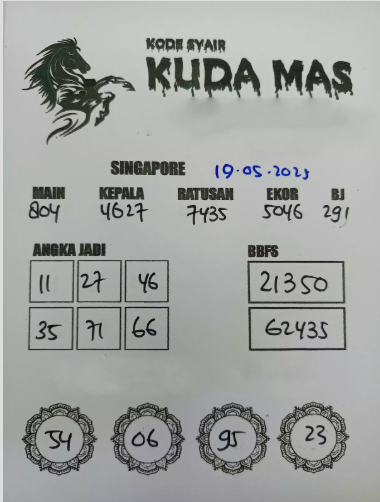 KODE SYAIR
KUDA MAS
SINGAPORE 19.05.2023
MAIN KEPALA RATUSAN EKOR BJ
804 4627 7435 5046 291
ANGKA JADI BBFS
11 27 46 21350
35 71 66 62435
54 06 95 23